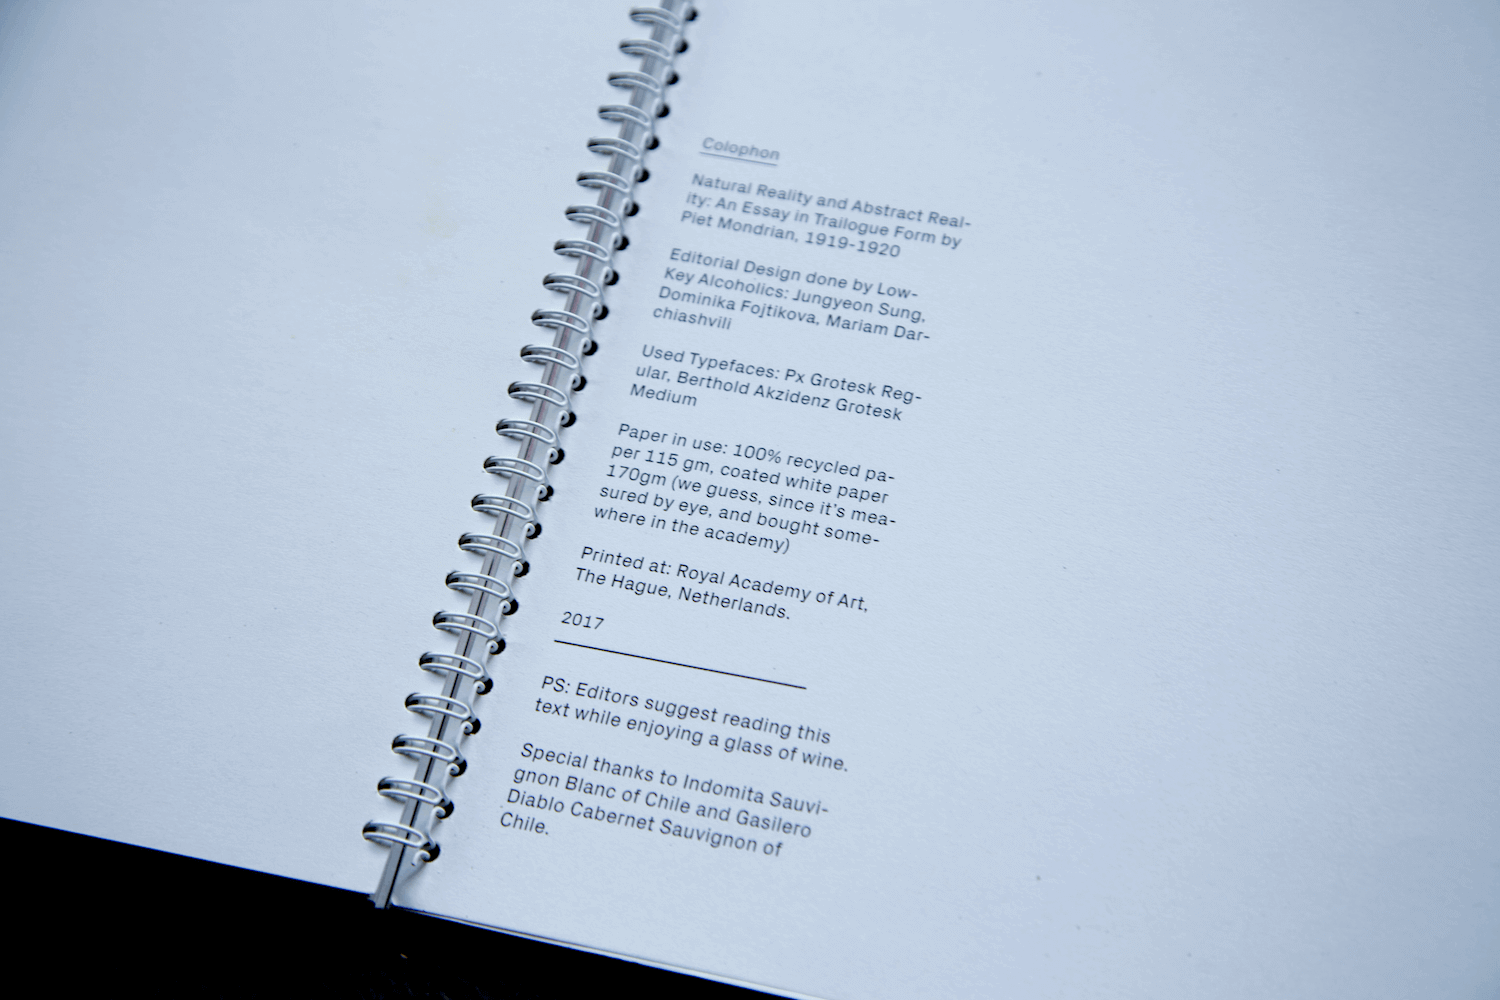 Colophon
Natural Reality and Abstract Real-
ity: An Essay in Trailogue Form by
Piet Mondrian, 1919-1920
Editorial Design done by Low-
Key Alcoholics: Jungyeon Sung,
Dominika Fojtikova, Mariam Dar-
chiashvili
Used Typefaces: Px Grotesk Reg-
ular, Berthold Akzidenz Grotesk
Medium
Paper in use: 100% recycled pa-
per 115 gm, coated white paper
170gm (we guess, since it's mea-
sured by eye, and bought some-
where in the academy)
Printed at: Royal Academy of Art,
The Hague, Netherlands.
2017
PS: Editors suggest reading this
text while enjoying a glass of wine.
Special thanks to Indomita Sauvi-
gnon Blanc of Chile and Gasilero
Diablo Cabernet Sauvignon of
Chile.